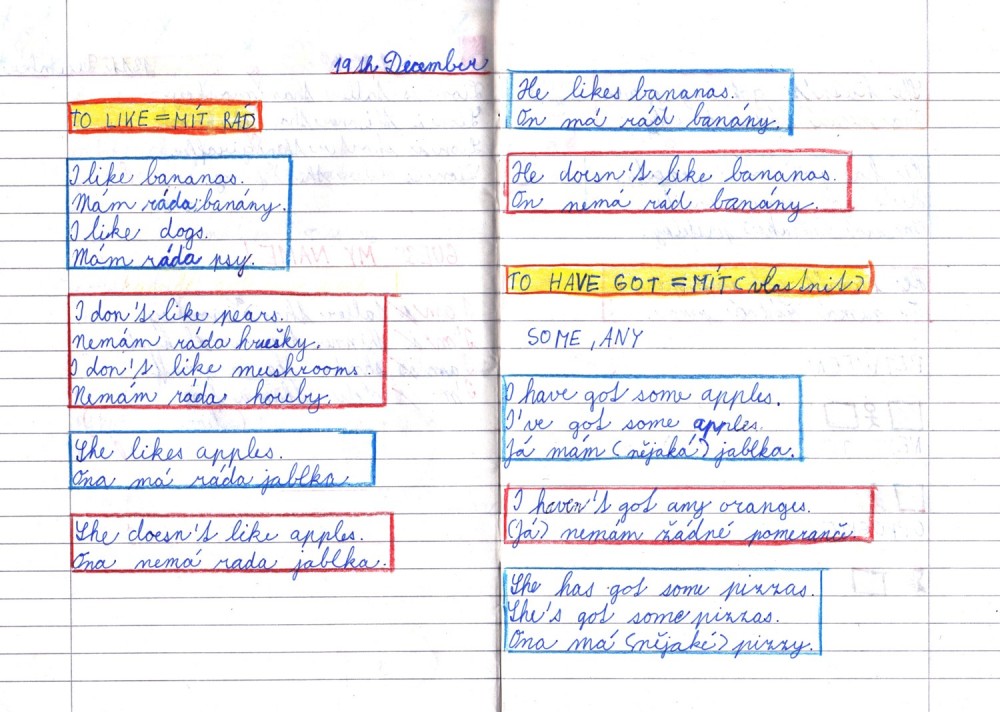 19th December
TO LIKE = MÍT RÁD
I like bananas.
Mám ráda banány.
I like dogs.
Mám ráda psy.
I don't like pears.
Nemám ráda hrušky.
I don't like mushrooms.
Nemám ráda houby.
She likes apples.
Ona má ráda jablka.
She doesn't like apples.
Ona nemá rada jablka.
He likes bananas.
On má rád banány.
He doesn't like bananas.
On nemá rád banány.
TO HAVE GOT = MÍT (vlastnit)
SOME, ANY
I have got some apples.
I've got some apples.
Já mám (nějaká) jablka.
I haven't got any oranges.
(Já) nemám žádné pomeranče.
She has got some pizzas.
She's got some pizzas.
Ona má (nějaké) pizzy.